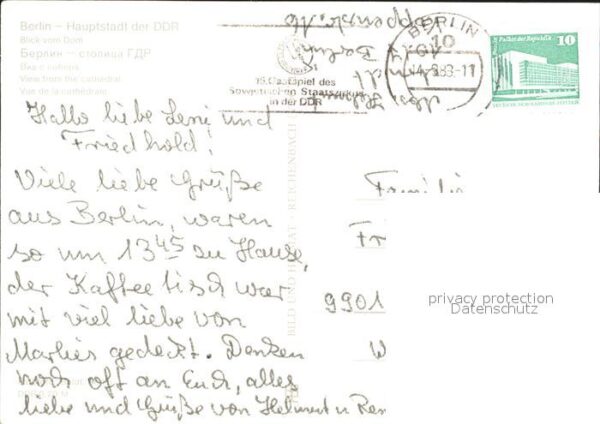 Berlin – Hauptstadt der DDR
Blick vom Dom
Берлин – столица ГДР
Вид с собора
View from the cathedral
Vue de la cathédrale
Gastspiel des
Sowjetischen Staatszirkus
in der DDR
BERLIN
10
-11
Palast der Republik
10
Hallo liebe Leni und
Friedhold!
Viele liebe Grüße
aus Berlin, waren
so um 13 45 zu Hause,
der Kaffeetisch war
mit viel liebe von
Marlies gedeckt. Denken
noch oft an Euch, alles
liebe und Grüße von Helmut u
BILD UND HEIMAT REICHENBACH
Berlin
Familie
9901
privacy protection
Datenschutz